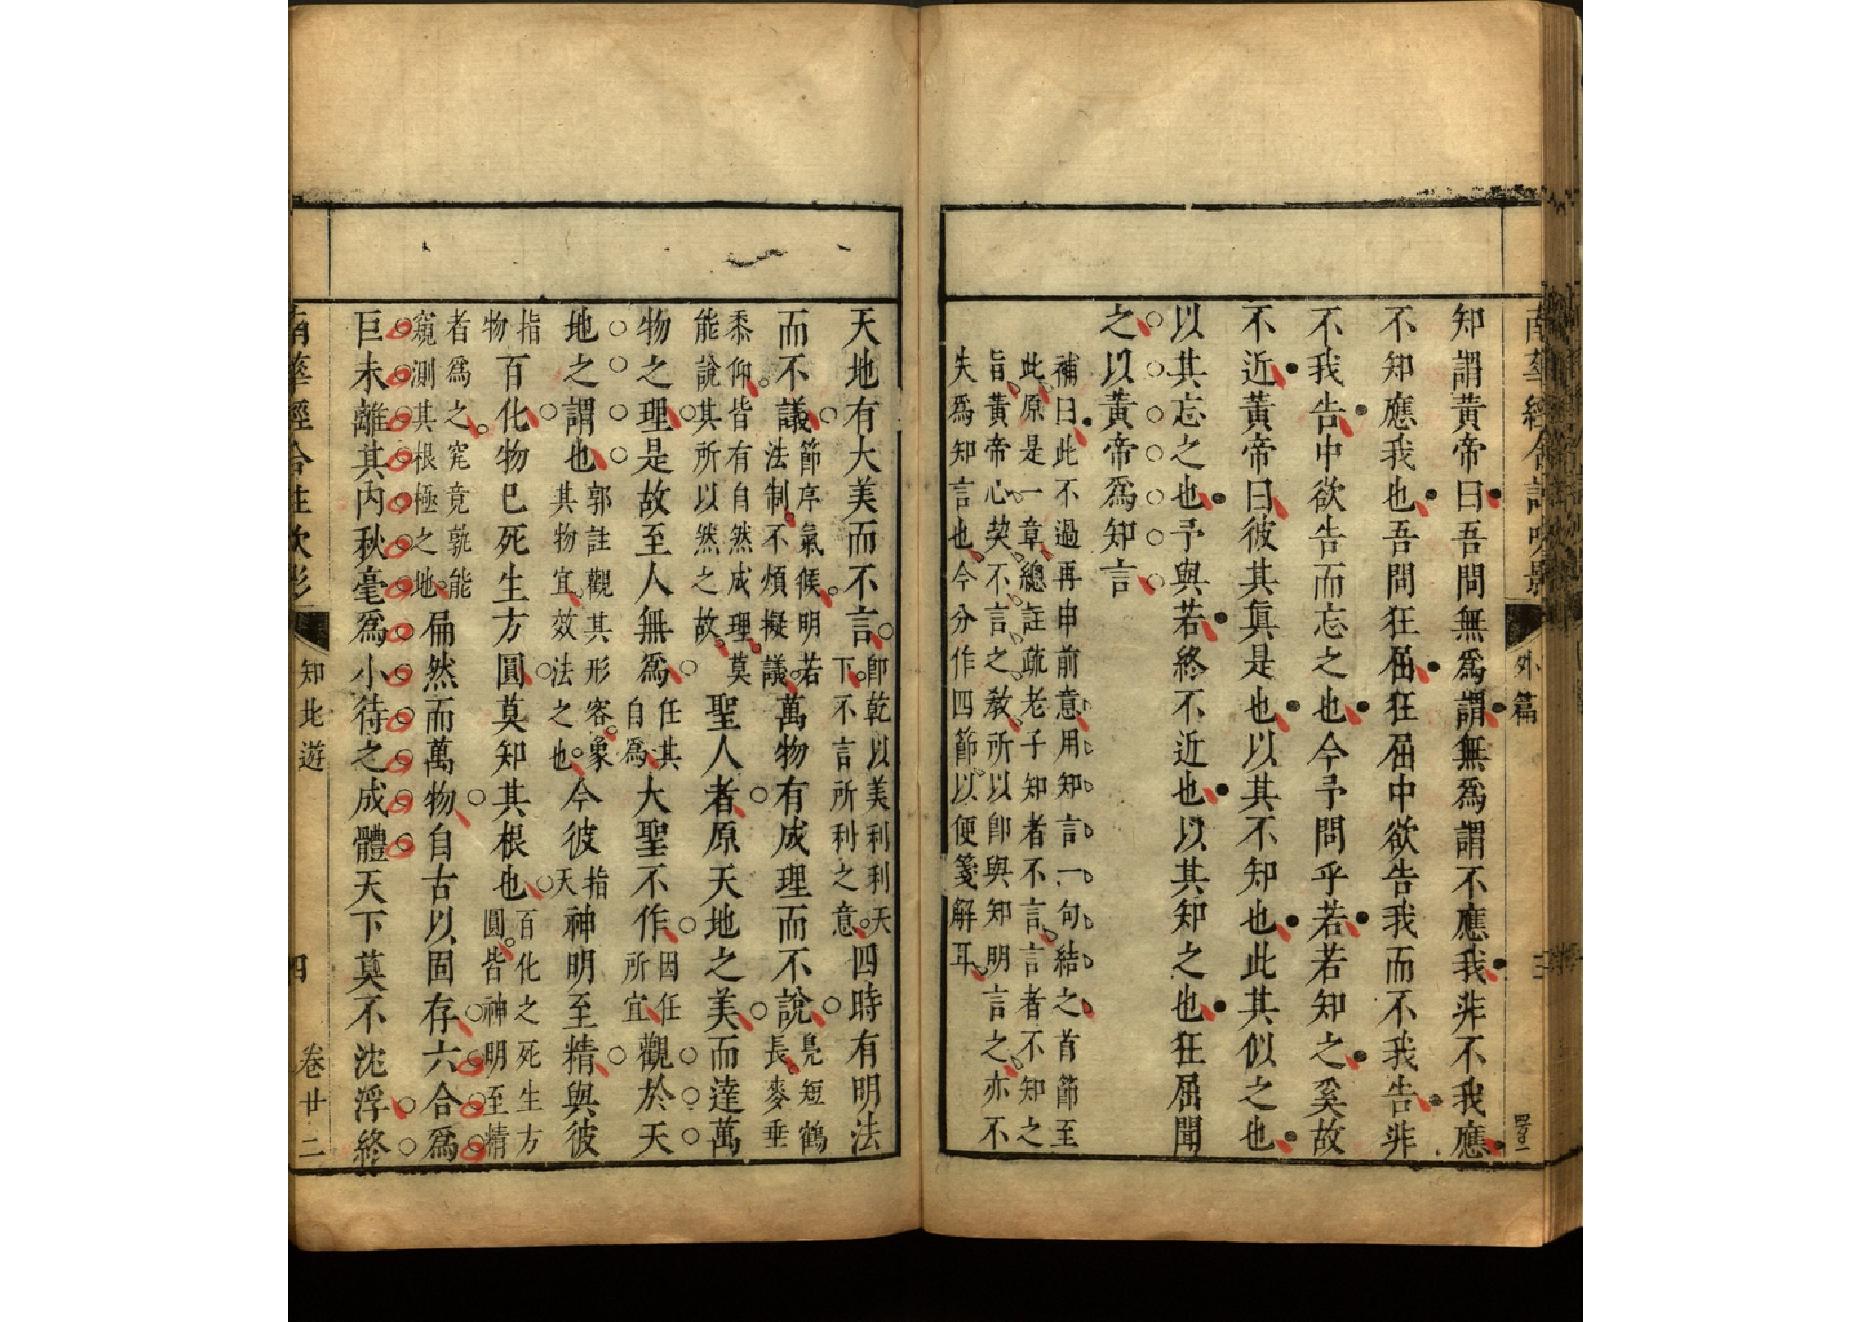 知謂黃帝曰吾問無爲謂無爲謂不應我非不我應
不知應我也吾問狂屈狂屈中欲告我而不我告非
不我告中欲告而忘之也今予問乎若若知之奚故
不近黃帝曰彼其眞是也以其不知也此其似之也
以其忘之也予與若終不近也以其知之也狂屈聞
之以黃帝爲知言
補曰此不過再申前意用知言一句結之首節至
此原是一章總註疏老子知者不言言者不知之
旨黃帝心契不言之敎所以卽與知明言之亦不
失爲知言也今分作四節以便箋解耳
外篇
天地有大美而不言卽乾以美利利天下不言所利之意四時有明法
而不議節序氣候明若法制不煩擬議萬物有成理而不說凫短鶴長麥垂
黍仰皆有自然成理莫能說其所以然之故聖人者原天地之美而達萬
物之理是故至人無爲任其自爲大聖不作因任所宜觀於天
地之謂也郭註觀其形容象其物宜效法之也今彼指天神明至精與彼
指物百化物巳死生方圓莫知其根也百化之死生方圓皆神明至精
者爲之究竟孰能窺測其根極之地扁然而萬物自古以固存六合爲
巨未離其內秋毫爲小待之成體天下莫不沈浮終
知北遊
四
卷廿二